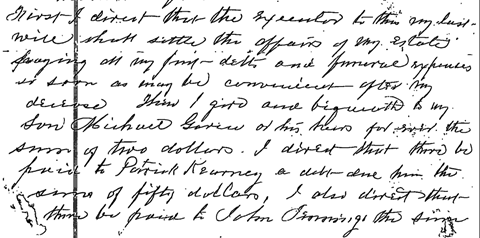 First I direct that the executor to this my last
will shall settle the affairs of my Estate
paying all my just debts and funeral expenses
as soon as may be convenient after my
decease Then I give and bequeath to my
son Michael or his heirs for ever the
sum of two dollars. I direct that there be
paid to Patrick Kearney a debt due him the
sum of fifty dollars, I also direct that
there be paid to John Jennings the sum